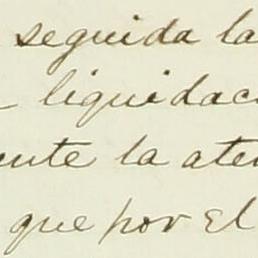 seguida la
liquidac
ente la ate
que por el